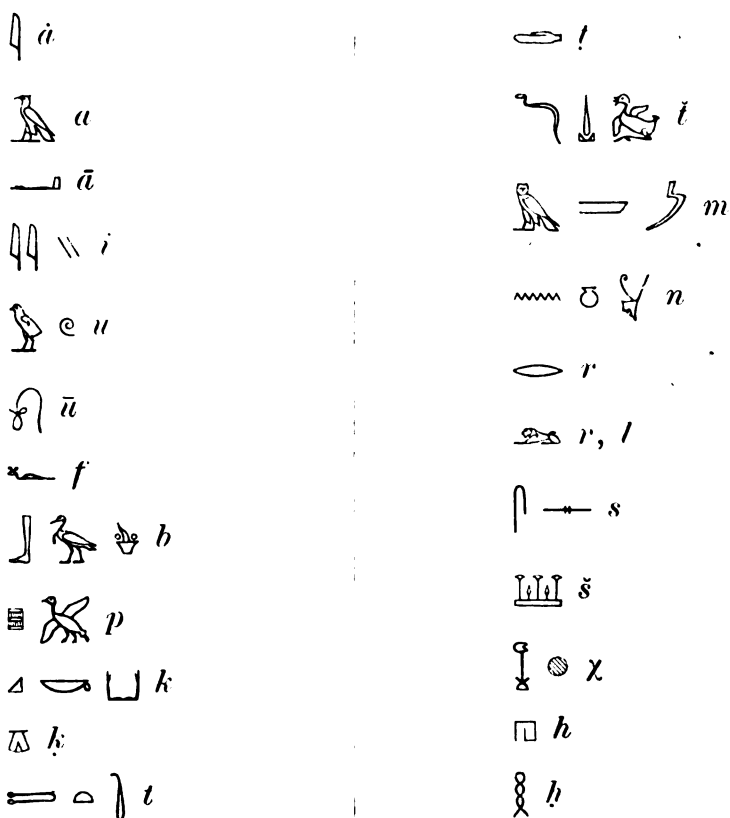 𓇋 ȧ
𓄿 a
𓂝 ā
𓇋𓇋 𓏭 i
𓅱 𓏲 u
𓍯 ū
𓆑 f
𓃀 𓅡 𓊸 b
𓊪 𓅮 p
𓈎 𓎡 𓂓 k
𓎼 ḳ
𓍿 𓏏 𓍘 t
𓂧 ṭ
𓆓 𓍑 𓅷 t̆
𓅓 𓐝 𓌳 m
𓈖 𓏌 𓋔 n
𓂋 r
𓃭 r, l
𓋴 𓊃 s
𓆷 š
𓆼 𓐍 χ
𓉔 h
𓎛 ḥ